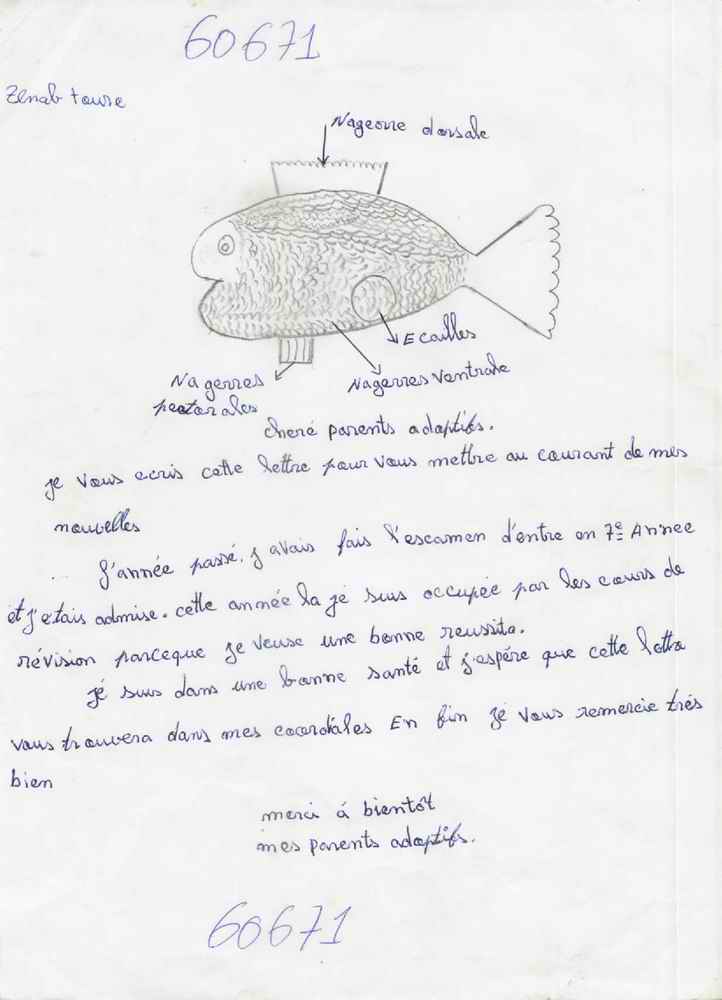 60671
Zenab toure
Nageoire dorsale
Ecailles
Nagerres Ventrale
Nagerres
pectorales
cheré parents adoptifs.
je vous ecris cette lettre pour vous mettre au courant de mes
nouvelles
L'année passé. j avais fais l'escamen d'entre en 7e Annee
et j'etais admise. cette année la jé suis occupée par les cours de
révision parceque je veuse une bonne reussite.
jé suis dans une bonne santé et j'espére que cette lettre
vous trouvera dans mes coordiales En fin jé vous remercie trés
bien
merci á bientôt
mes parents adoptifs.
60671